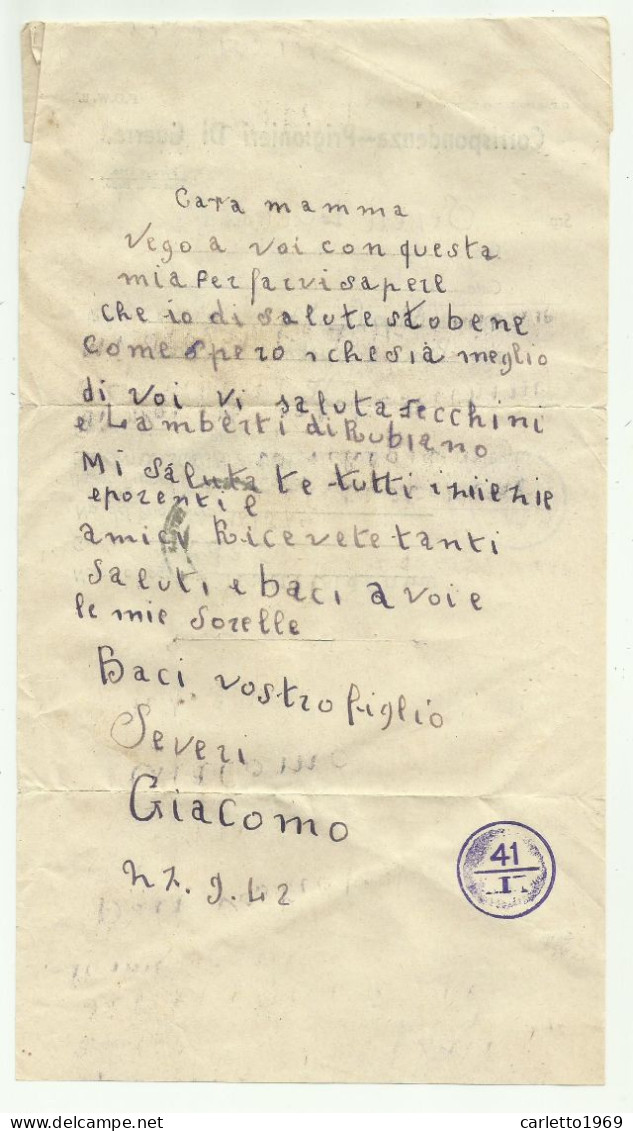 Cara mamma
Vego a voi con questa
mia per farvi sapere
che io di salute stobene
Come spero che sia meglio
di voi vi saluta Secchini
e Lamberti di Rubiano
Mi saluta te tutti i miei zie
eporenti e
amici Ricevete tanti
saluti e baci a voi e
le mie sorelle
Baci vostro figlio
Severi
Giacomo
27.9.42
41
I
Corrispondenza-Prigionieri Di Guerra
delcampe.net
carletto1969